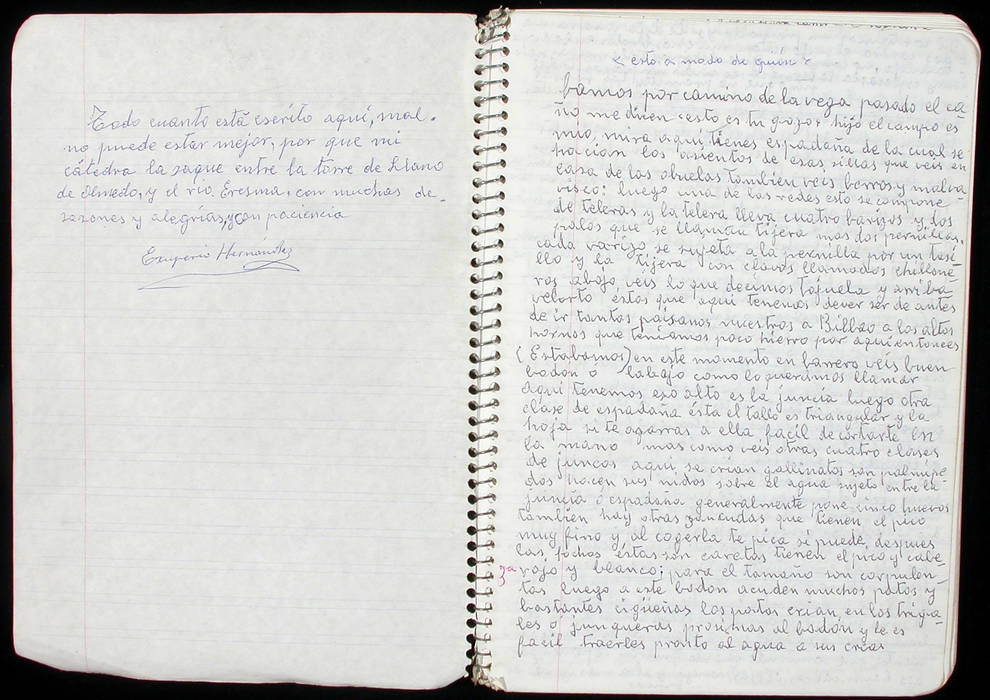 Todo cuanto está escrito aquí, mal.
no puede estar mejor, por que mi
cátedra la saque entre la torre de Llano
de Olmedo, y el río Eresma, con muchas de-
sazones y alegrías, y con paciencia
Exuperio Hernández
< esto a modo de guión >
bamos por camino de la vega pasado el ca-
ño me dicen esto es tu gozo hijo el campo es
mio, mira aquí tienes espadaña de la cual se
hacían los asientos de esas sillas que veis en
casa de las abuelas tambien veis berros y malva
visco: luego una de las redes esto se compone
de teleras y la telera lleva cuatro barizos y dos
palos que se llaman tijera mas dos pernillas.
cada varizo se sujeta a la pernilla por un tasi-
llo y la tijera con clavos llamados chillone-
ros abajo, veis lo que decimos tajuela y arriba
velorto estos que aqui tenemos dever ser de antes
de ir tantos paisanos nuestros a Bilbao a los altos
hornos que teniamos poco hierro por aqui entonces
(Estabamos) en este momento en barrero veis buen
bodon o labajo como lo queramos llamar
aquí tenemos eso alto es la juncia luego otra
clase de espadaña ésta el tallo es triangular y la
hoja si te agarras a ella facil de cortarte en
la mano mas como veis otras cuatro clases
de juncos aqui se crian gallinatos son palmipe-
dos hacen sus nidos sobre el agua sujeto entre la
juncia o espadaña generalmente pone cinco huevos
tambien hay otras zancudas que tienen el pico
muy fino y al cogerla te pica si puede, despues
las fochas estas son caretas tienen el pico y cabe-
3ª rojo y blanco; para el tamaño son corpulen-
tas luego a este bodon acuden muchos patos y
bastantes cigüeñas los patos crian en los triga-
les o junqueras prosimas al bodón y le es
facil traerles pronto al agua a sus crias